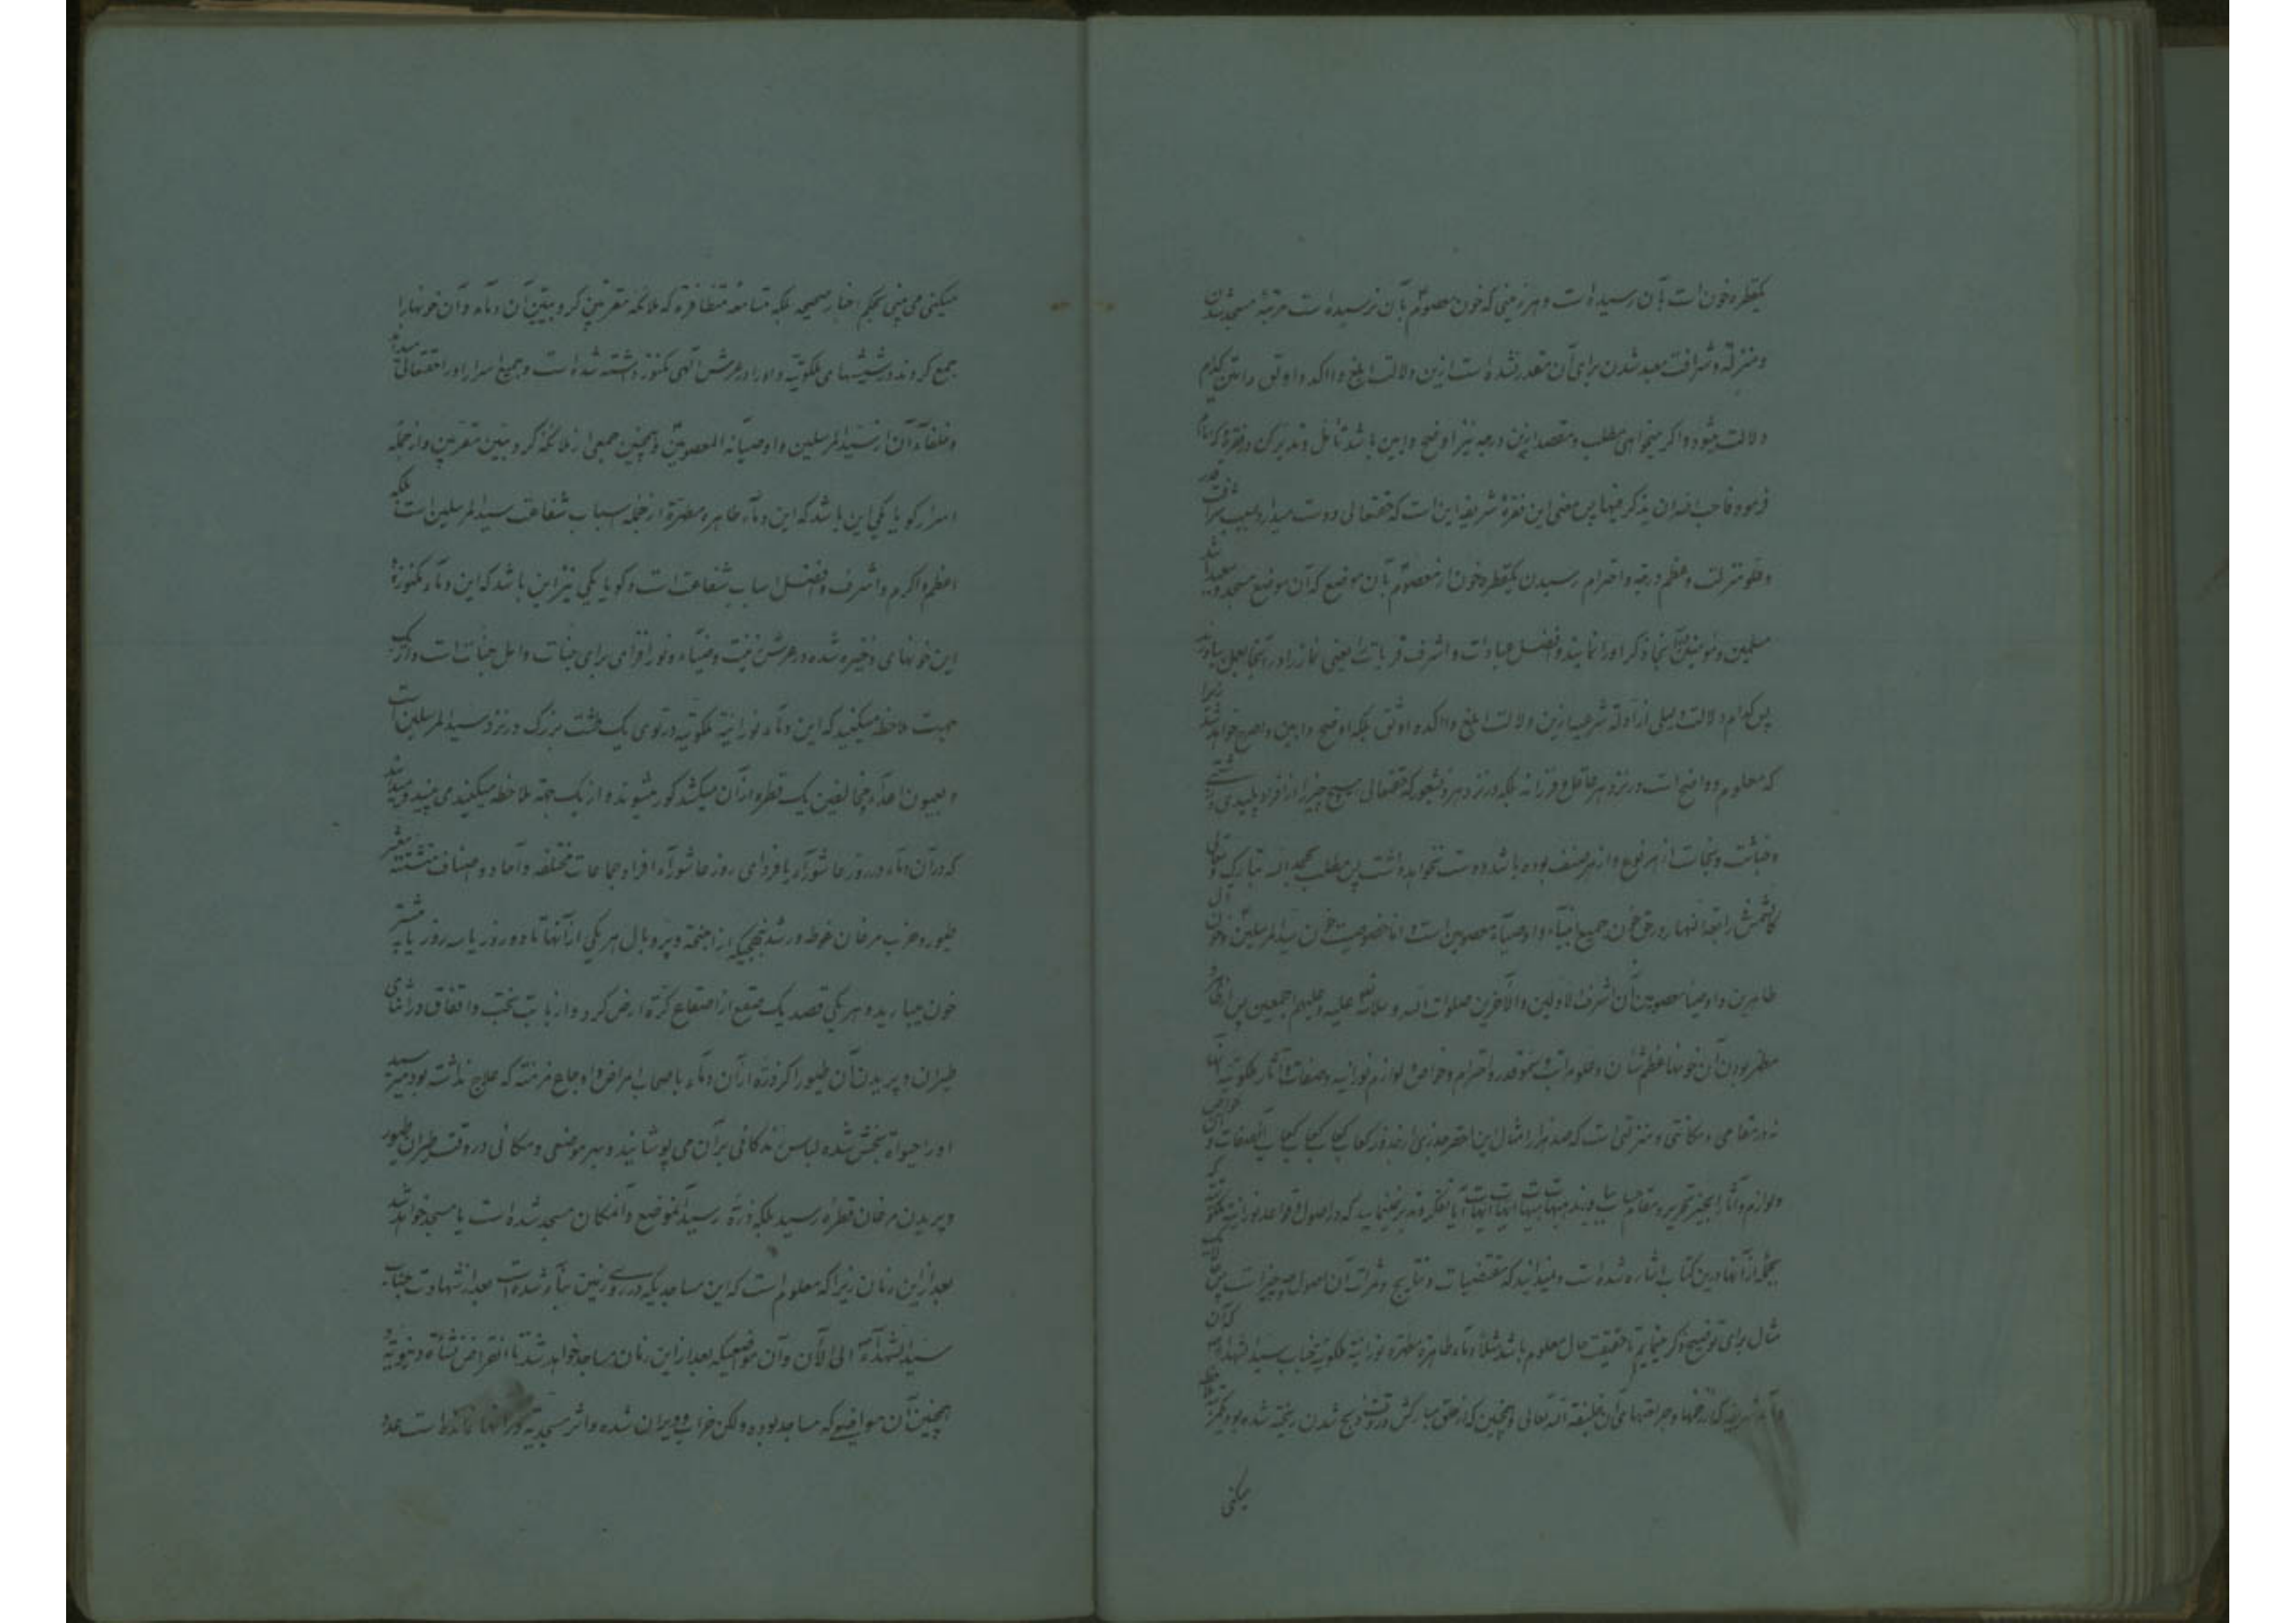 یکقطره خون است بآن رسیده است و هر زمینی که خون معصوم بآن نرسیده است مرتبه مسجد شدن
و منزلة و شرافت معبد شدن برای آن مقدر نشده است ازین دلالت ابلغ و آکد و اوثق و ابین کدام
دلالت میشود و اگر میخواهی مطلب و مقصد ازین درجه نیز اوضح و ابین باشد تأمل و تدبر کن در فقره که امام
فرمود فاحب الله ان یذکر فیها پس معنی این فقرهٔ شریفه این است که حقتعالی دوست میدارد بسبب شرافت قدر
و علو منزلت و عظم درجه و احترام رسیدن یکقطره خون از معصوم بآن موضع که آن موضع مسجد و معبد باشد
مسلمین و مؤمنین در آنجا ذکر او را نمایند و افضل عبادات و اشرف قربات یعنی نماز را در آنجا بعمل بیاورند
پس کدام دلالت دلیلی از ادله شرعیه ازین دلالت ابلغ و آکد و اوثق بلکه اوضح و ابین و اصح خواهد شد زیرا
که معلوم و واضح است در نزد هر عاقل و فرزانه بلکه در نزد هر ذیشعور که حقتعالی هیچ چیز را از افراد پلیدی و
و خباثت و نجاست از هر نوع و از هر صنف بوده باشد دوست نخواهد داشت پس مطلب بحمد الله تبارک و تعالی
کالشمس رابعة النهار در حق خون جمیع انبیاء و اوصیاء معصومین است و اما خصوصیت خون سید المرسلین و خون آل
طاهرین و اوصیاء معصومین آن اشرف الاولین و الآخرین صلوات الله و سلامه علیه و علیهم اجمعین پس
مطهر بودن آن خونها و عظم شأن و علو مراتب و سمو قدر و احترام و خواص و لوازم نورانیه و صفات و آثار ملکوتیه آنها
نه در مقامی و مکانتی و منزلتی است که صد هزار امثال این احقر جزئی از کما یجا یجا یجا از صفات و خواص
و لوازم و آثار را بحیز تحریر و مقام بیان بیاورند هیهات هیهات آیا تفکر و تدبر نمینمایید که در اصول و قواعد نورانیه ملکوتیه که
بجمله از آنها درین کتاب اشاره شده است و میدانید که مقتضیات و نتایج و ثمرات آن اصول چه چیز است پس
مثال برای توضیح ذکر مینمایم تا حقیقت حال معلوم باشد مثلا دماء طاهره مطهره نورانیه ملکوتیه جناب سید الشهداء که آن
دماء شریفه که از زخمها و جراحتهای آن خلیفة الله تعالی و همچنین که از حلق مبارکش در وقت ذبح شدن ریخته شده بود
میکنی
میکنی می بینی بحکم اخبار صحیحه بلکه متسامعه متظافره که ملائکه مقربین کروبیین آن دماء و آن خونها را
جمع کردند در شیشهای ملکوتیه و او را در عرش الهی مکنوز داشته شده است و جمیع اسرار او را حقتعالی میداند
و خلفاء آن از سید المرسلین و اوصیائه المعصومین و همچنین جمعی از ملائکه کروبیین مقربین و از جمله
اسرار گویا یکی این باشد که این دماء طاهره مطهره از جمله اسباب شفاعت سید المرسلین است بلکه
اعظم و اکرم و اشرف و افضل اسباب شفاعت است و گویا یکی نیز این باشد که این دماء مکنوزه و
این خونهای ذخیره شده در عرش زینت و ضیاء و نور افزای برای جنات و اهل جنات است و از یک
جهت ملاحظه میکنید که این دماء نورانیه ملکوتیه در توی یک طشت بزرگ در نزد سید المرسلین است
و بعیون اعداء و مخالفین یک قطره از آن میکشد کور میشوند و از یک جهة ملاحظه میکنید می بینید و میدانید
که در آن دماء در روز عاشوراء یا فردای روز عاشوراء افراد و جماعات مختلفه و آحاد و اصناف متشتته
طیور و حزب مرغان غوطه ور شد بنحویکه از اجنحه و پر و بال هر یکی از آنها تا دو روز یا سه روز یا بیشتر
خون میبارید و هر یکی قصد یک صقع از اصقاع کرهٔ ارض کرد و از بابت بخت و اتفاق در اثنای
طیران و پریدن آن طیور اگر ذره از آن دماء باصحاب امراض و اوجاع مزمنه که علاج نداشت بود میرسید
او را حیوة بخش شده لباس زندگانی بر آن می پوشانید و بهر موضعی و مکانی در وقت طیران طیور
و پریدن مرغان قطرهٔ رسید بلکه ذرهٔ رسید آنموضع و آنمکان مسجد شده است یا مسجد خواهد شد
بعد از این زمان زیرا که معلوم است که این مساجدیکه در روی زمین بناء شده است بعد از شهادت جناب
سید الشهداء الی الآن و آن مواضعیکه بعد از این زمان مساجد خواهد شد تا انقراض نشأهٔ دنیویه و
همچنین آن مواضعیکه مساجد بوده ولکن خراب و ویران شده و اثر مسجدیة در آنها نمانده است عدد